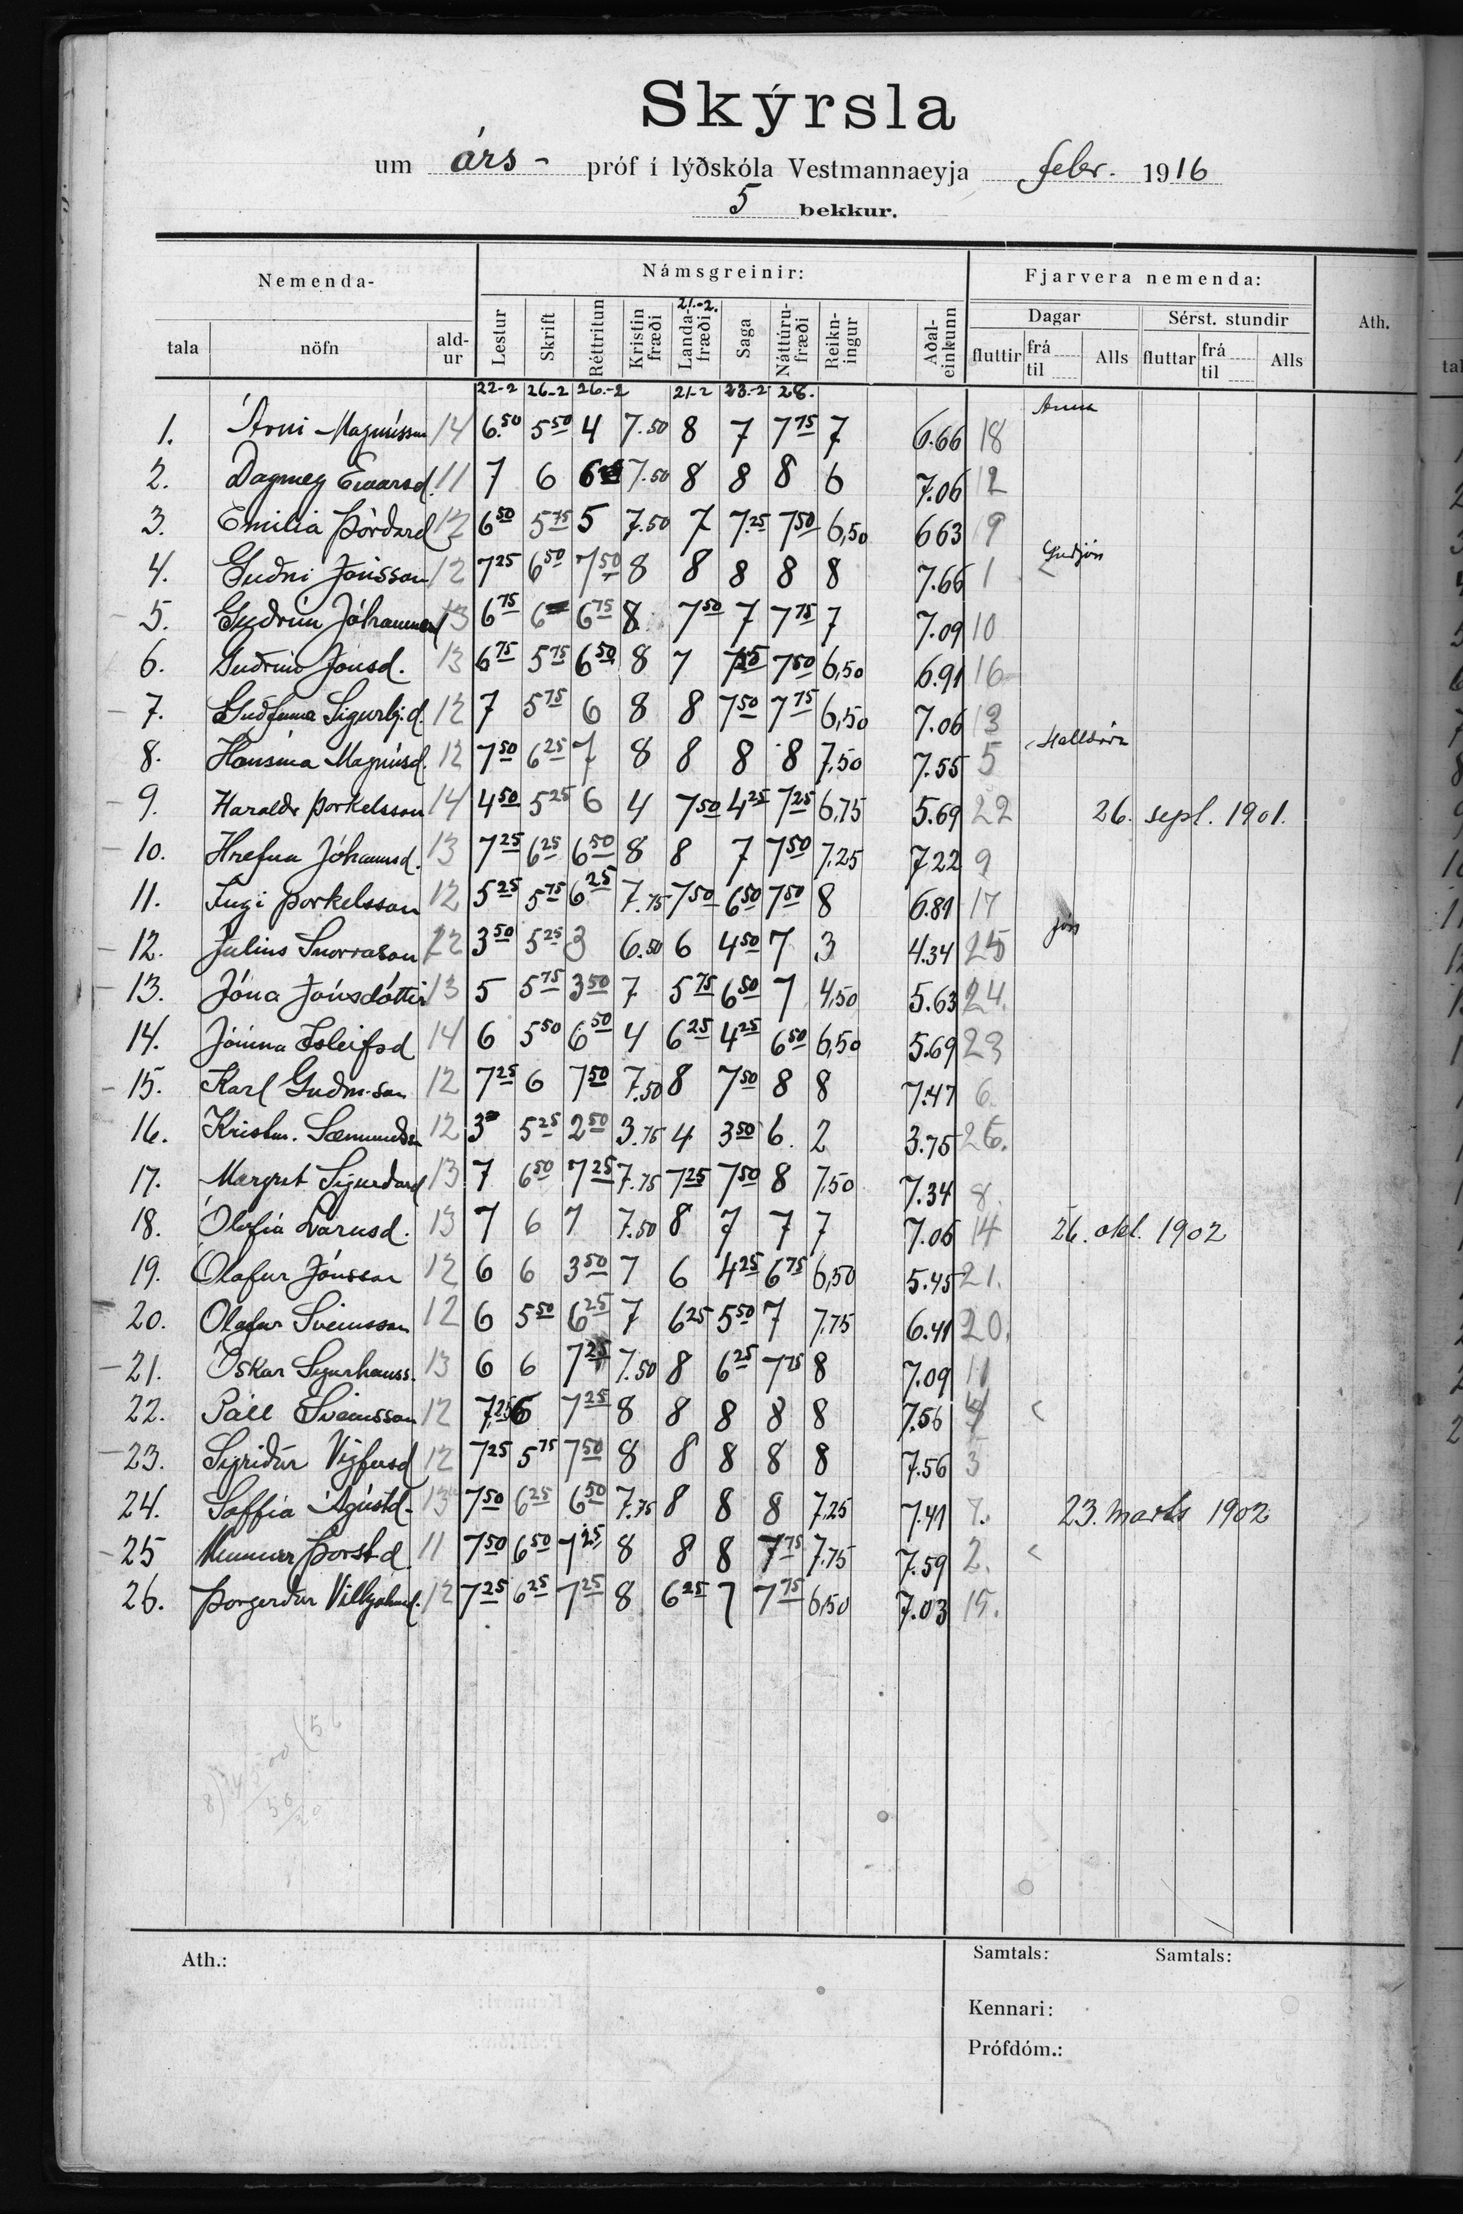 Skýrsla
um árs- próf í lýðskóla Vestmannaeyja febr. 1916
5 bekkur.
Nemenda- Námsgreinir: Fjarvera nemenda: Ath.
21.-2.
tala nöfn ald-ur Lestur Skrift Réttritun Kristin fræði Landa-fræði Saga Náttúru-fræði Reikn-ingur Aðal-einkunn Dagar Sérst. stundir
fluttir frá til Alls fluttar frá til Alls
22-2 26-2 26.-2 21-2 23.-2 28.
Anna
1. Árni Magnússon 14 6.50 5 50 4 7.50 8 7 7 75 7 6.66 18
2. Dagmey Einarsd. 11 7 6 6 7.50 8 8 8 6 7.06 12
3. Emilia Þórðard 12 6 50 5 75 5 7.50 7 7.25 7 50 6,50 6 63 19
Guðjón
4. Guðni Jónsson 12 7 25 6 50 7 50 8 8 8 8 8 7.66 1
5. Guðrún Jóhannesd 13 6 75 6 6 75 8 7 50 7 7 75 7 7.09 10
6. Guðrún Jónsd. 13 6 75 5 75 6 50 8 7 7 50 6,50 6.91 16
7. Guðfinna Sigurbj.d. 12 7 5 75 6 8 8 7 50 7 75 6,50 7.06 13
Halldóra
8. Hansína Magnúsd. 12 7 50 6 25 7 8 8 8 8 7,50 7.55 5
9. Haraldr Þorkelsson 14 4 50 5 25 6 4 7 50 4 25 7 25 6,75 5.69 22 26. sept. 1901.
10. Hrefna Jóhannsd. 13 7 25 6 25 6 50 8 8 7 7 50 7,25 7 22 9
11. Ingi Þorkelsson 12 5 25 5 75 6 25 7.75 7 50 6 50 7 50 8 6.81 17
jóns
12. Július Snorrason 12 3 50 5 25 3 6.50 6 4 50 7 3 4.34 25
13. Jóna Jónsdóttir 13 5 5 75 3 50 7 5 75 6 50 7 4,50 5.63 24.
14. Jónína Ísleifsd 14 6 5 50 6 50 4 6 25 4 25 6 50 6,50 5.69 23
15. Karl Guðm.son 12 7 25 6 7 50 7.50 8 7 50 8 8 7.47 6.
16. Kristm. Sæmundsn 12 3 5 25 2 50 3.75 4 3 50 6. 2 3.75 26.
17. Margrét Sigurðard 13 7 6 50 7 25 7.75 7 25 7 50 8 7,50 7.34 8.
18. Ólafía Lárusd. 13 7 6 7 7.50 8 7 7 7 7.06 14 26. okt. 1902
19. Ólafur Jónsson 12 6 6 3 50 7 6 4 25 6 75 6,50 5.45 21.
20. Ólafur Sveinsson 12 6 5 50 6 25 7 6 25 5 50 7 7,75 6.41 20.
21. Óskar Sigurhanss. 13 6 6 7 25 7.50 8 6 25 7 75 8 7.09 11
22. Páll Sveinsson 12 7,25 6 7 25 8 8 8 8 8 7.56 4
23. Sigríður Vigfusd 12 7 25 5 75 7 50 8 8 8 8 8 7.56 3
24. Soffía Ágústd. 13 7 50 6 25 6 50 7.75 8 8 8 7,25 7.41 7. 23. marts 1902
25 Unnur Þorst.d. 11 7 50 6 50 7 25 8 8 8 7 75 7.75 7.59 2.
26. Þorgerður Vilhjálmsd. 12 7 25 6 25 7 25 8 6 25 7 7 75 6,50 7.03 15.
Ath.: Samtals: Samtals:
Kennari:
Prófdóm.: